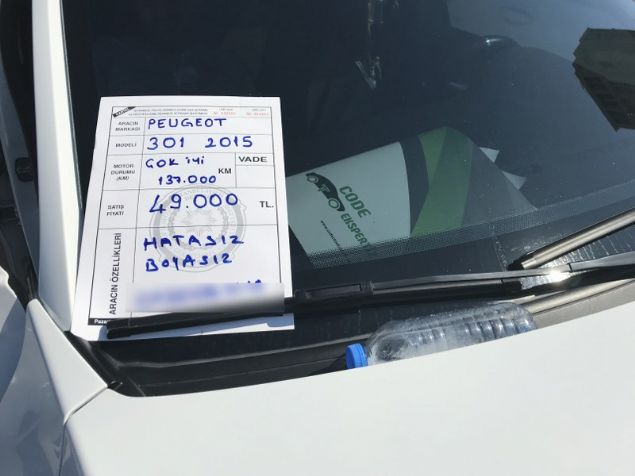 ARACIN MARKASI PEUGEOT
MODELİ 301 2015
MOTOR DURUMU (KM) ÇOK iyi VADE
137.000 KM
SATIŞ FİYATI 49.000 TL.
ARACIN ÖZELLİKLERİ
HATASIZ
BOYASIZ
CODE
EKSPER